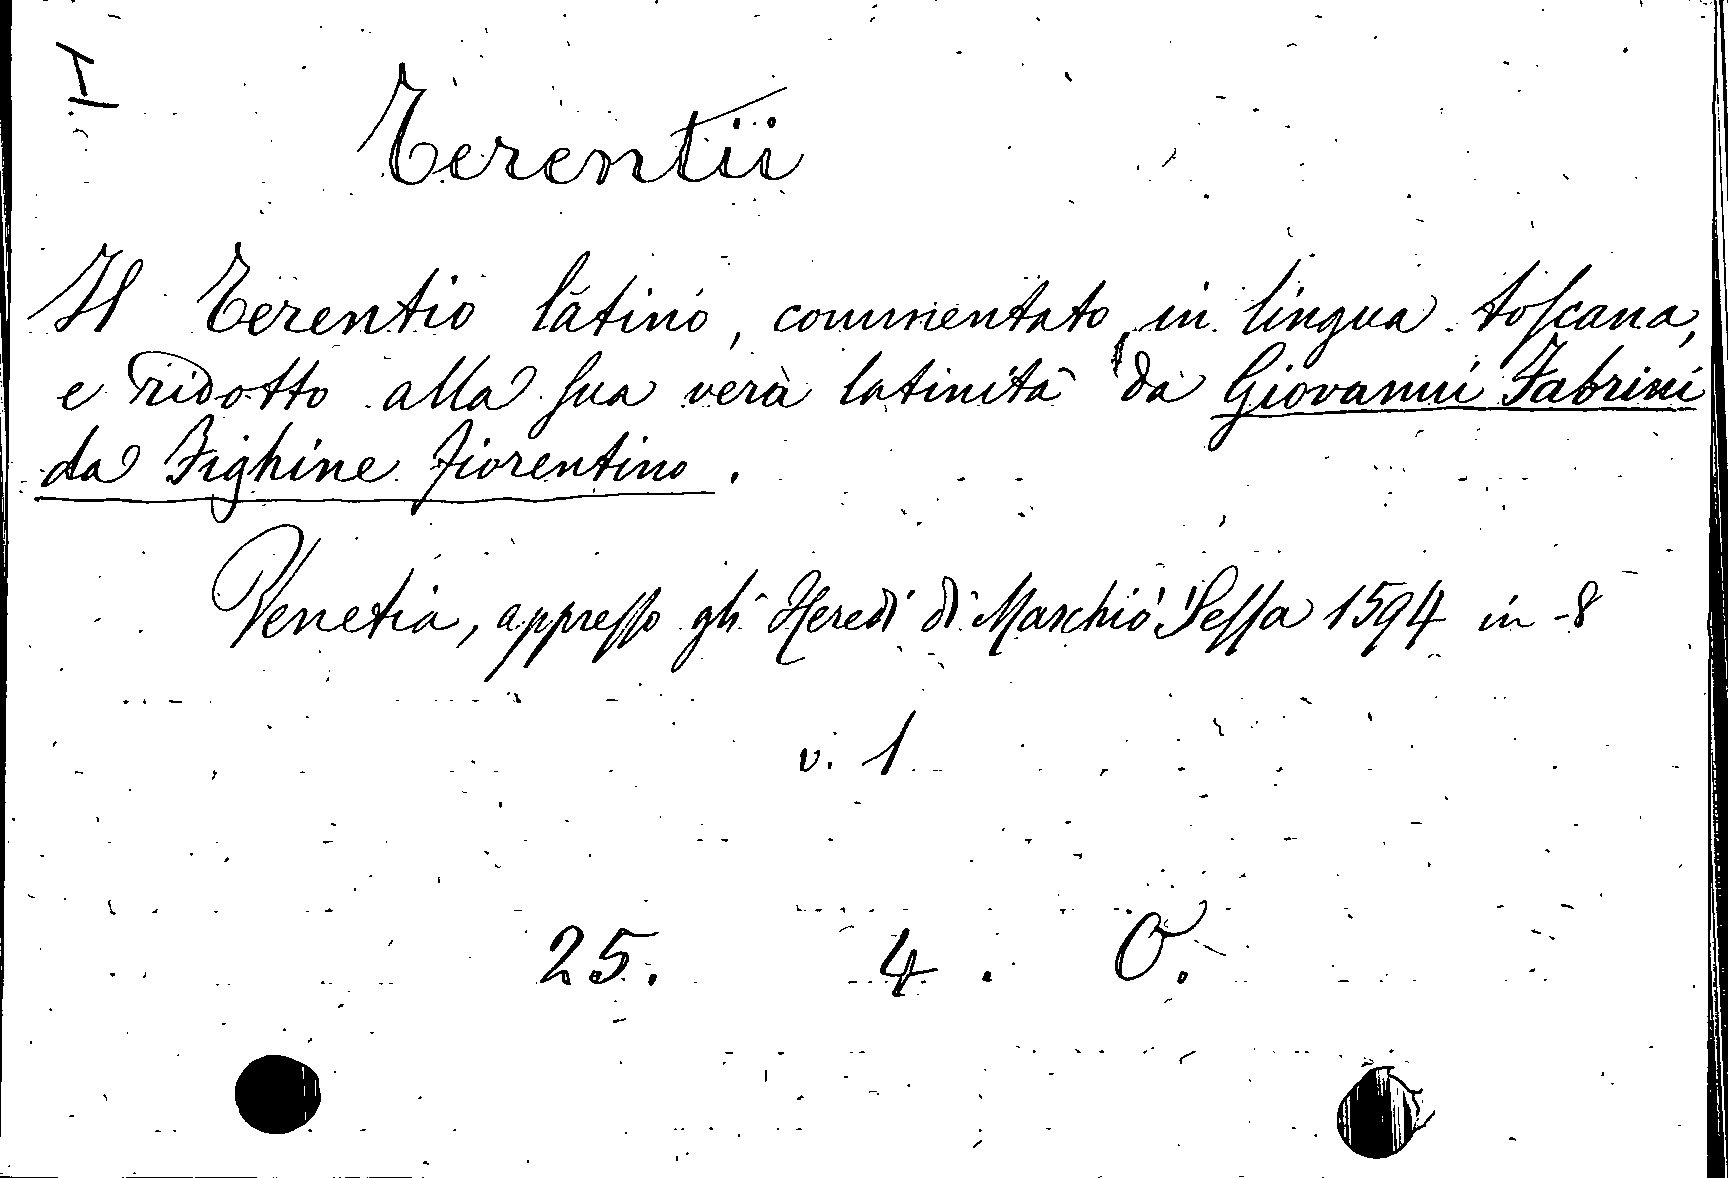 T
Terentii
Il Terentio latino, commentato in lingua toſcana,
e ridotto alla ſua vera latinità da Giovanni Fabrini
da Fighine fiorentino.
Venetia, appreſſo gli Heredi di Marchio Seſſa 1594 in-8
v. 1
25. 4. O.